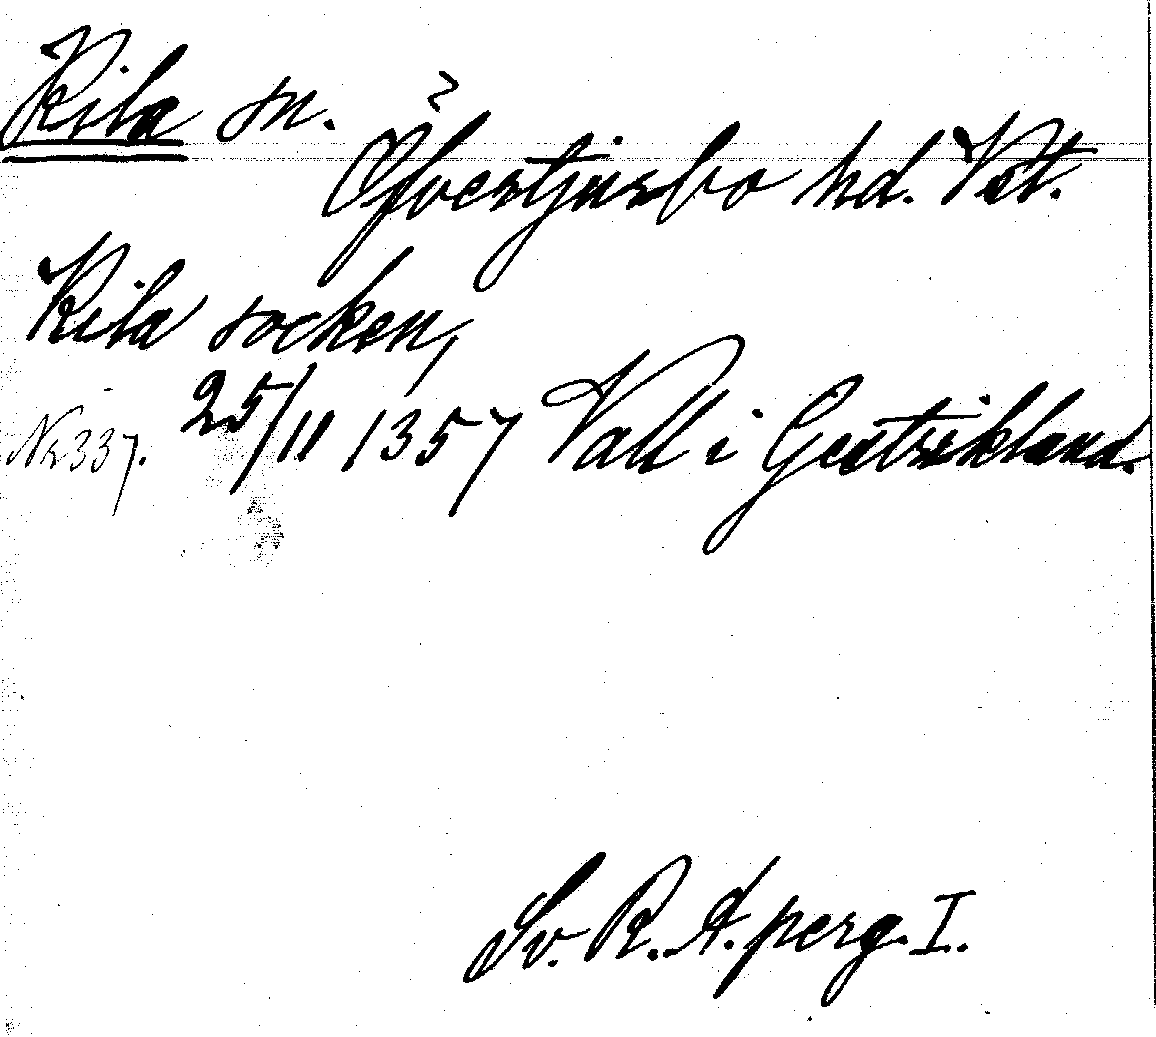 Kila sn.
Öfvertjursbo hd. Vstm.
Kila socken,
Nr 337. 25/11 1357 Vall i Gestrikland.
Sv. R. A. perg. I.